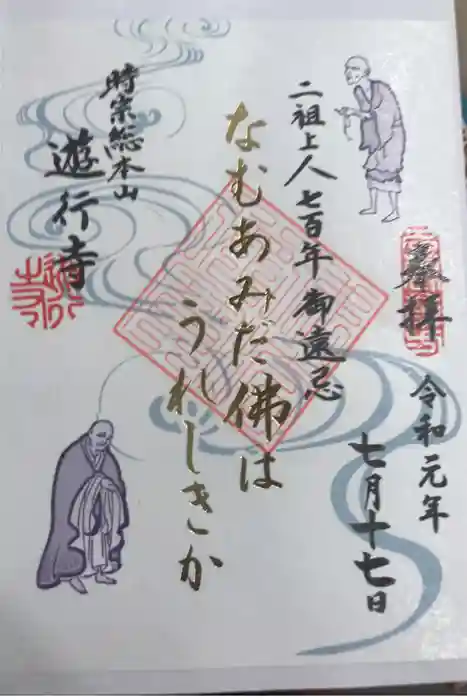 奉拝
令和元年
七月十七日
二祖上人七百年御遠忌
なむあみだ佛は
うれしきか
時宗総本山
遊行寺